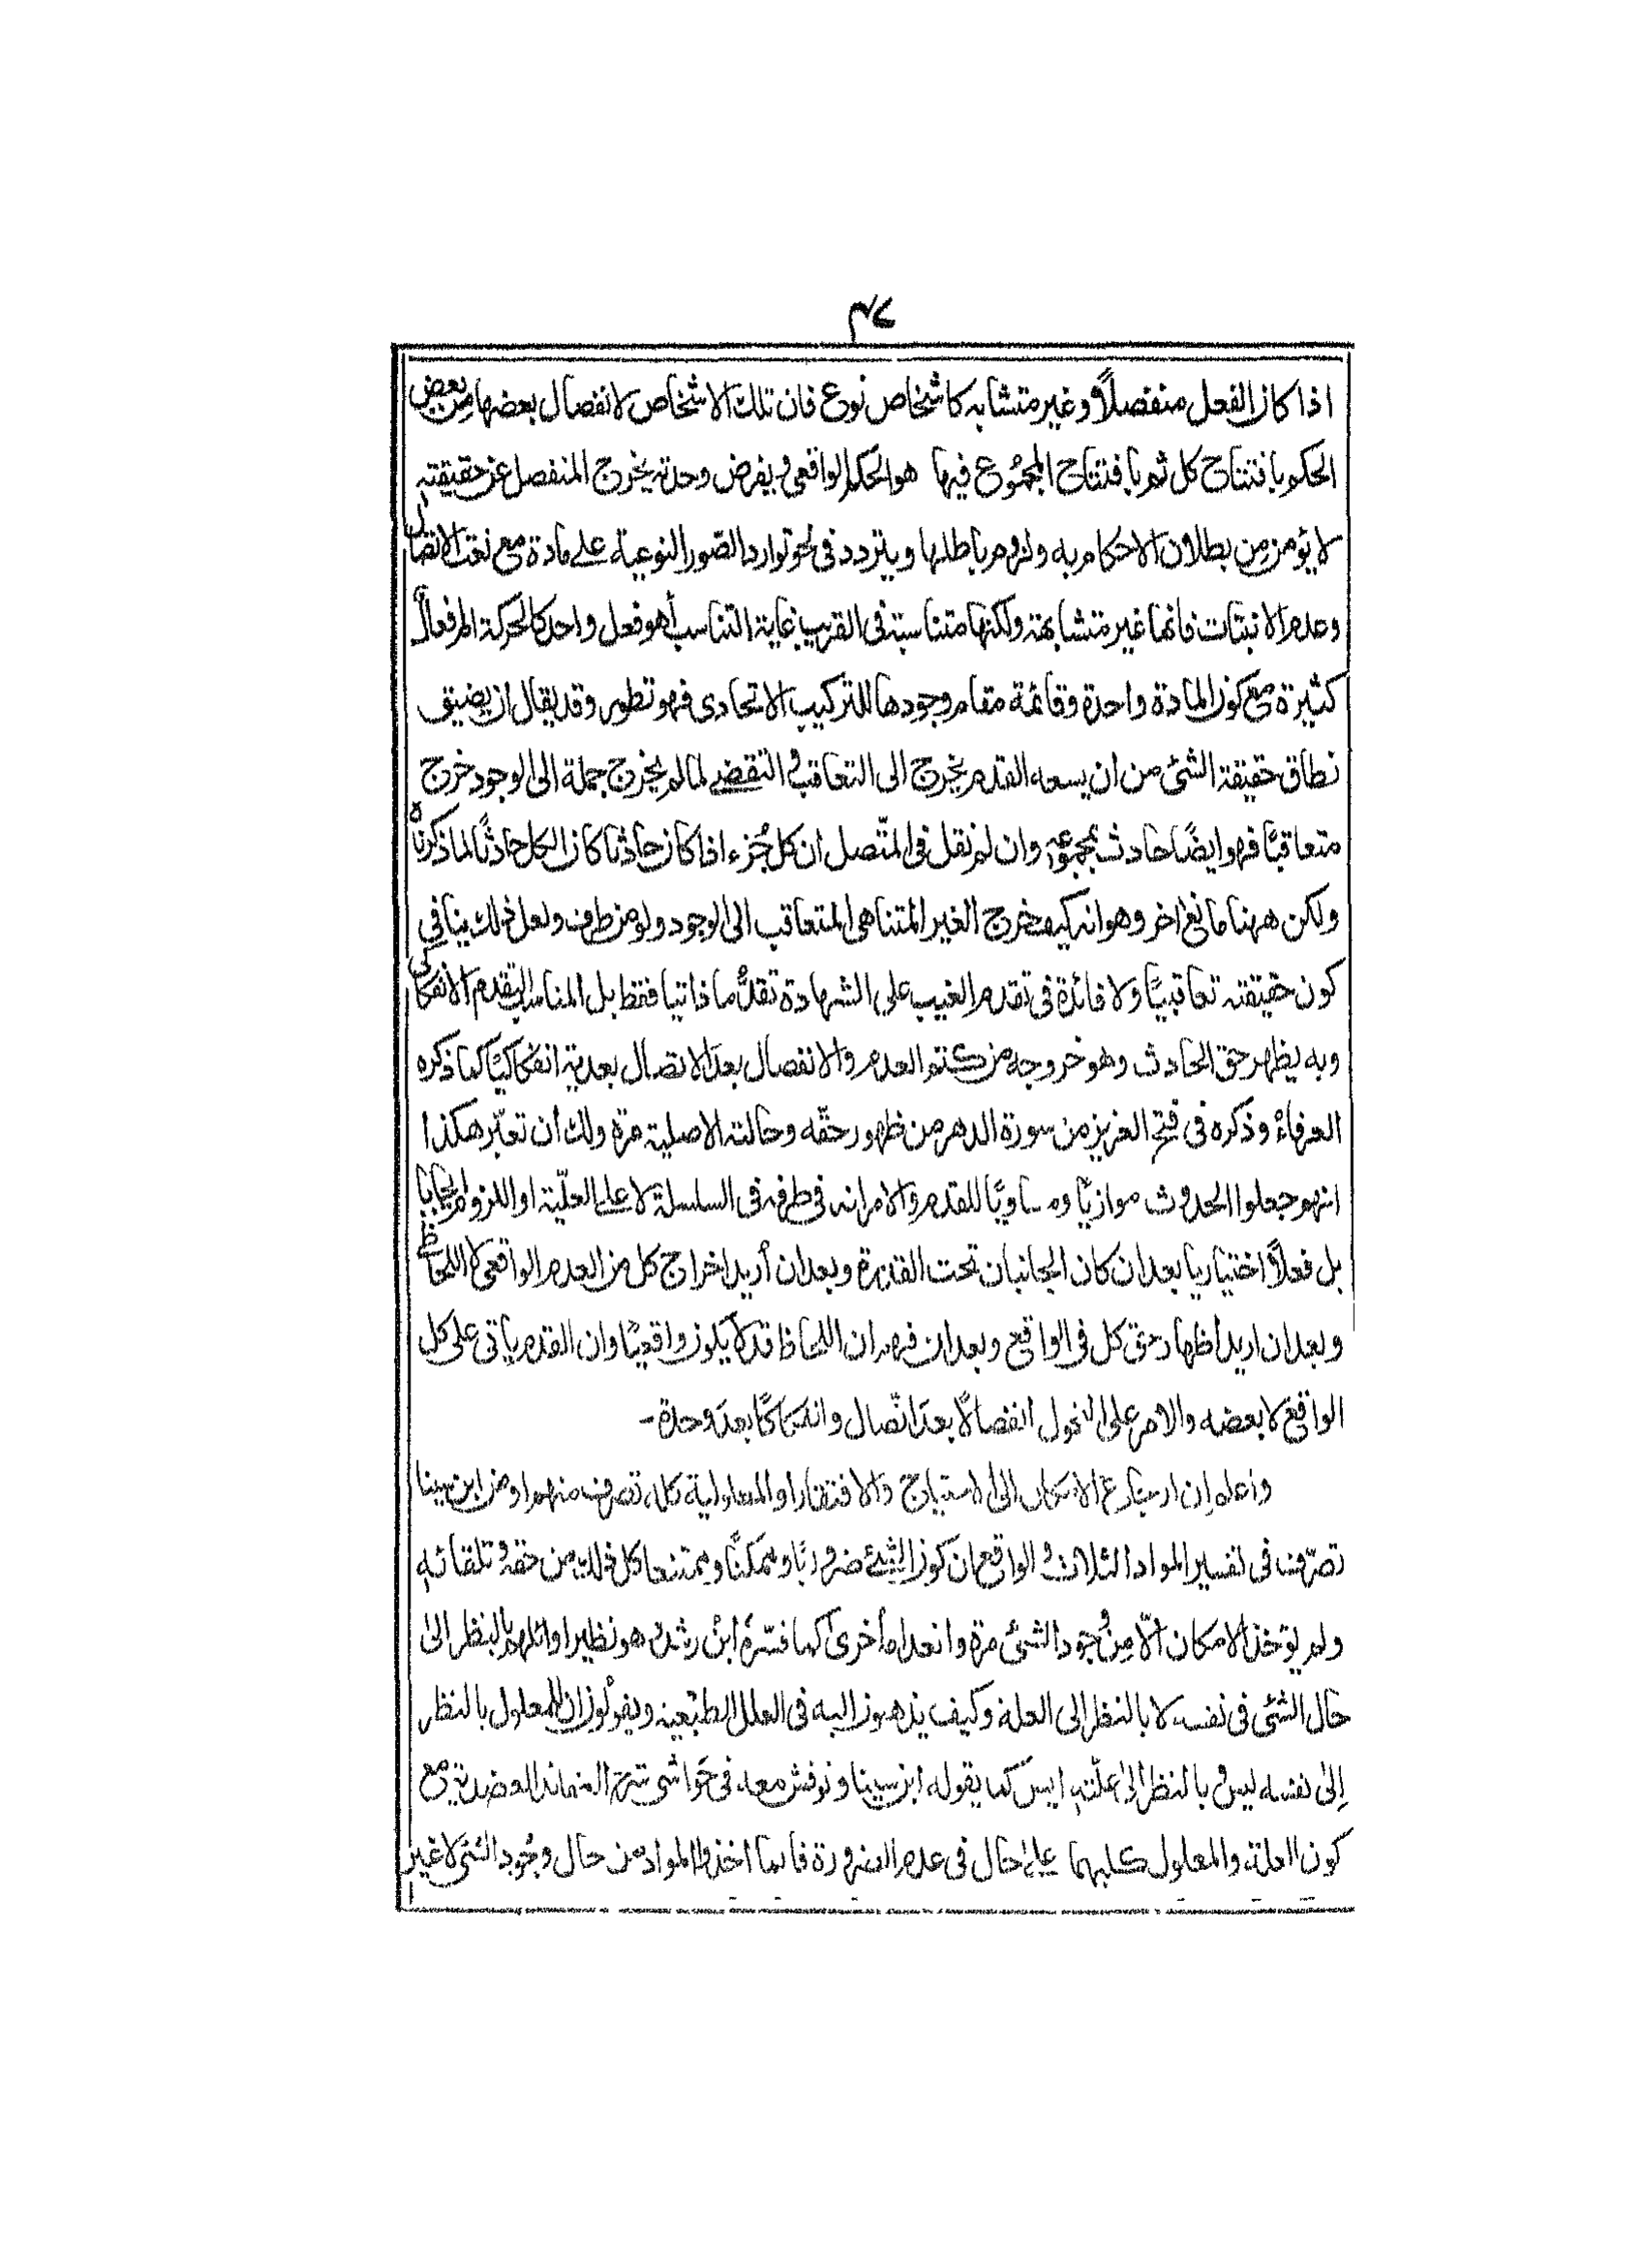 ٤٧
اذا كان الفعل منفصلاً وغير متشابه كاشخاص نوع فان تلك الاشخاص لانفصال بعضها من بعض
الحكم بافتتاح كل ثم بافتتاح المجموع فيها هو الحكم الواقعى ويفرض وحدته يخرج المنفصل عن حقيقته
لا يؤمن من بطلان الاحكام به ولزوم باطلها ويتردد فى نحو توارد الصور النوعية على مادة مع نعت الاتصال
وعدم الانبتات فانها غير متشابهة ولكنها متناسبة فى القريب غاية التناسب أهو فعل واحد كالحركة ام افعال
كثيرة مع كون المادة واحدة وقائمة مقام وجودها للتركيب الاتحادى فهو تطور وقد يقال ان يضيق
نطاق حقيقة الشئ من ان يسعه القدم يخرج الى التعاقب و التقضى لما لم يخرج جملة الى الوجود خرج
متعاقبًا فهو ايضًا حادث بمجموعه وان لم نقل فى المتّصل ان كل جُزء اذا كان حادثا كان الكل حادثًا لما ذكرناه
ولكن ههنا مانع اخر وهو انه كيف خرج الغير المتناهى المتعاقب الى الوجود ولو من طرف ولعل ذلك ينافى
كون حقيقته تعاقبيًا ولا فائدة فى تقدم الغيب على الشهادة تقدُّما ذاتيا فقط بل المناسب التقدم الانفكاكى
وبه يظهر حق الحادث وهو خروجه من كتم العدم والانفصال بعد الاتصال بعدية انفكاكيًا كما ذكره
العرفاء وذكره فى فتح العزيز من سورة الدهر من ظهور حقّه وحالته الاصلية مرة ولك أن تعبّر هكذا
انهم جعلوا الحدوث موازيًا ومساويًا للقدم والامر انه فى طرفه فى السلسلة لا على العلّية او اللزوم ايجابا
بل فعلاً اختياريا بعد ان كان الجانبان تحت القدرة وبعد ان أريد اخراج كل من العدم الواقعى لا اللحاظى
وبعد ان اريد اظهار حق كل فى الواقع وبعد ان فهم ان اللحاظ قد لا يكون واقعيًا وان القدم ياتى على كل
الواقع لا بعضه والامر على النحول انفصالًا بعد اتّصال وانفكاكًا بعد وحدة -
واعلم ان ارجاع الامكان الى الاحتياج والافتقار او المعلولية كله تصرف منهم او من ابن سينا
تصرّف فى تفسير المواد الثلاث و الواقع ان كون الشئ ضروريًا وممكنًا وممتنعا كل ذلك من حقه وتلقائه
ولم يوخذ الامكان الّا من وجود الشئ مرة وانعدامه أخرى كما فسّره ابن رشد هو نظير اوائلهم بالنظر الى
حال الشئ فى نفسه لا بالنظر الى العلة وكيف يذهبون اليه فى العلل الطبعية ويقولون ان للمعلول بالنظر
إلى نفسه ليس وبالنظر الى علّته ايس كما يقوله ابن سينا ونوقش معه فى حواشى شرح العقائد العضدية مع
كون العلة والمعلول كليهما على حال فى عدم الضرورة فانما اخذوا المواد من حال وجُود الشئ لا غير